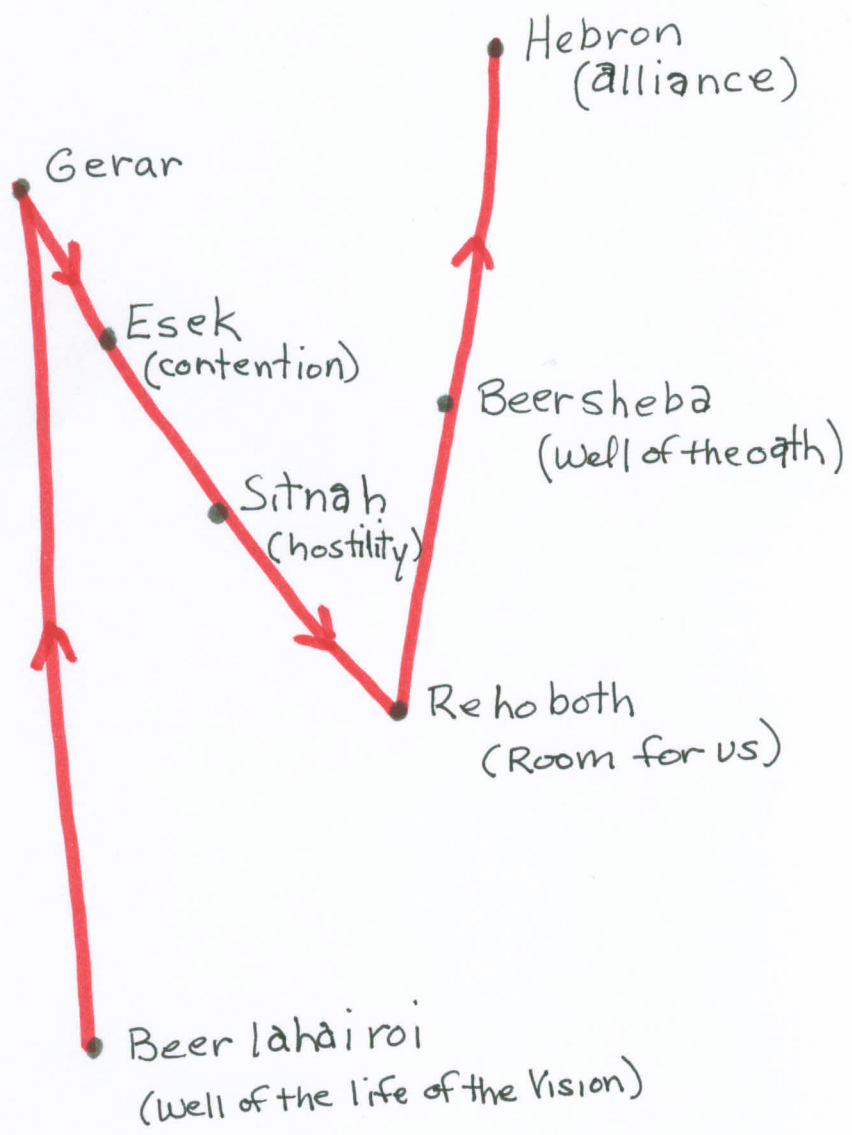 Hebron
(alliance)
Gerar
Esek
(contention)
Beersheba
(Well of the oath)
Sitnah
(hostility)
Rehoboth
(Room for us)
Beer lahai roi
(Well of the life of the Vision)